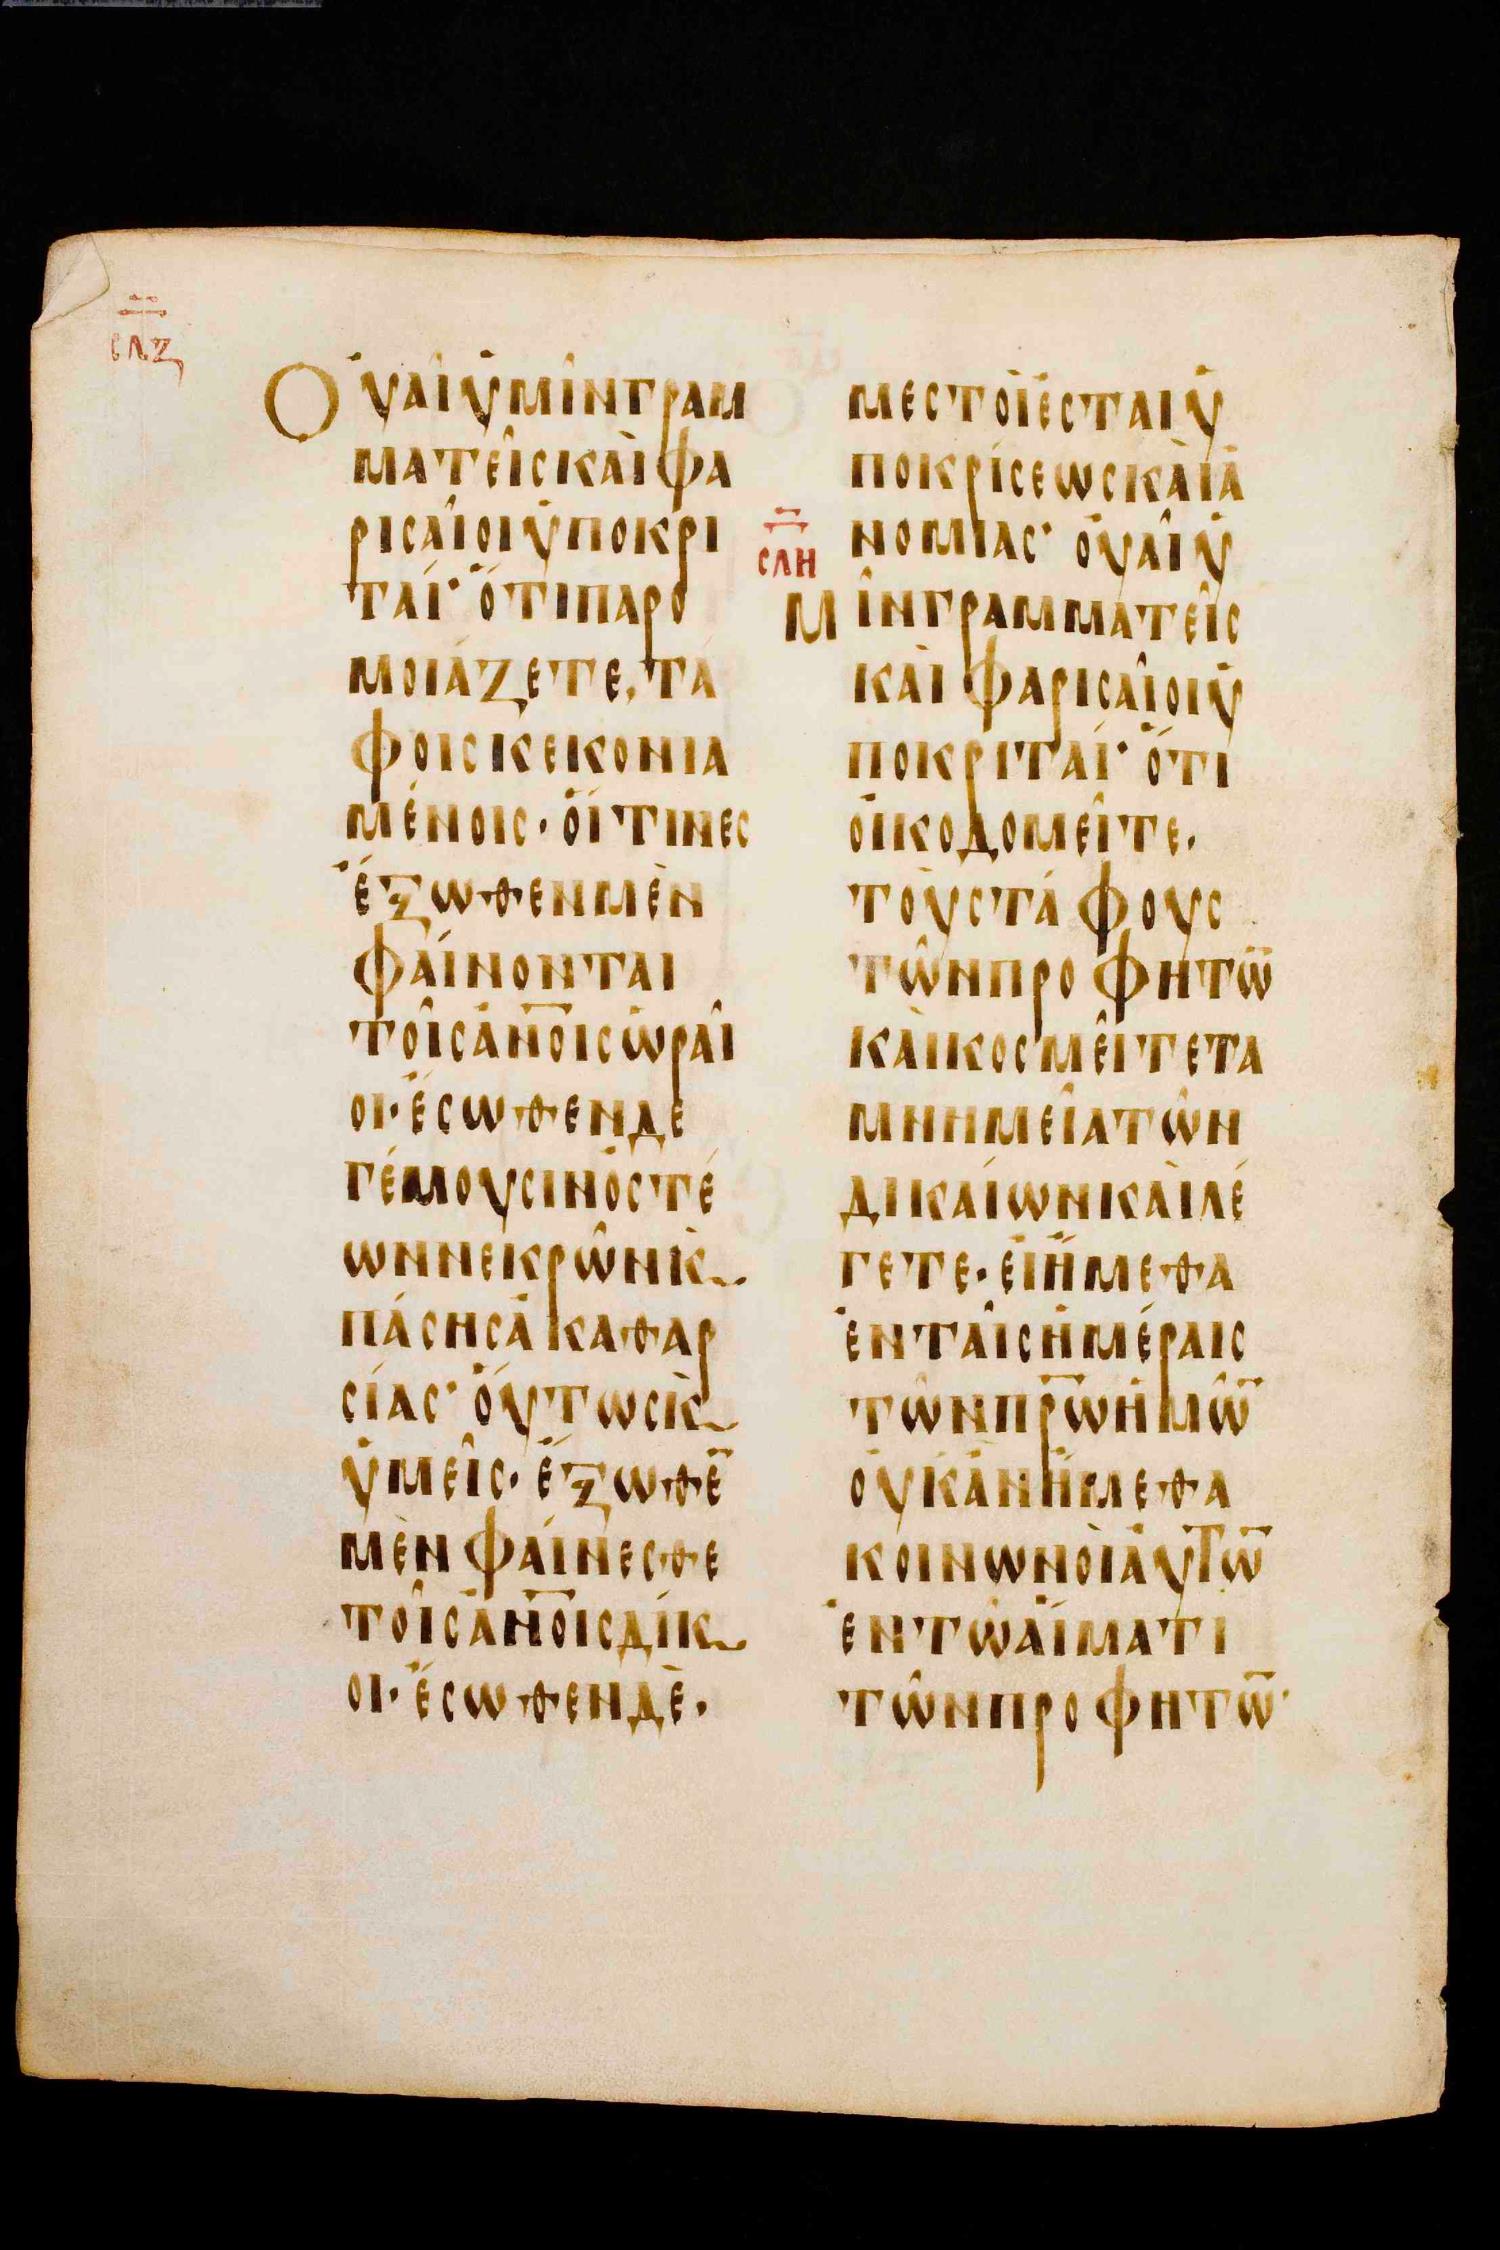 σλζ
Ὀυαὶ ὑμῖν γραμ
ματεῖς καὶ φα
ρισαῖοι ὑποκρι
ταί· ὅτι παρο
μοιάζετε, τά
φοις κεκονια
μένοις· ὅίτινες
ἔξωθεν μὲν
φαίνονται
τοῖς ἀν̅ο̅ις ὡραῖ
οι· ἔσωθεν δε
γέμουσιν ὀστέ
ων νεκρῶν κ̀
πάσης ἀκαθαρ
σίας· ὅυτως κ̀
ὑμεῖς· ἔξωθε̅
μὲν φαίνεσθε
τοῖς ἀν̅ο̅ις δίκ
οι· ἔσωθεν δὲ·
μεστοὶ ἐσται ὑ
ποκρίσεως καὶ ἀ
νομιας· ὀυαῖ ὑ
σλη
μῖν γραμματεῖς
καὶ φαρισαῖοι ὑ
ποκριταί· ὅτι
ὀικοδομεῖτε·
τοὺς τάφους
τῶν προφητῶ̅
καὶ κοσμεῖτε τα
μνημεῖα τῶν
δικαίων καὶ λέ
γετε· ἐι ἤμεθα
ἐν ταῖς ἡμέραις
τῶν π̅ρ̅ων ἡμῶ̅
ουκ ἀν ἤμεθα
κοινωνοὶ ἀυτῶ̅
ἐν τῶ ἁίματι
τῶν προφητῶ̅·